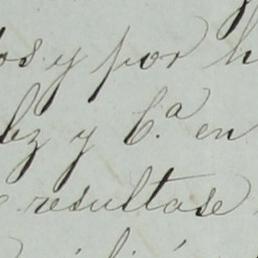 os y por h
bz y C.ª en
resultase